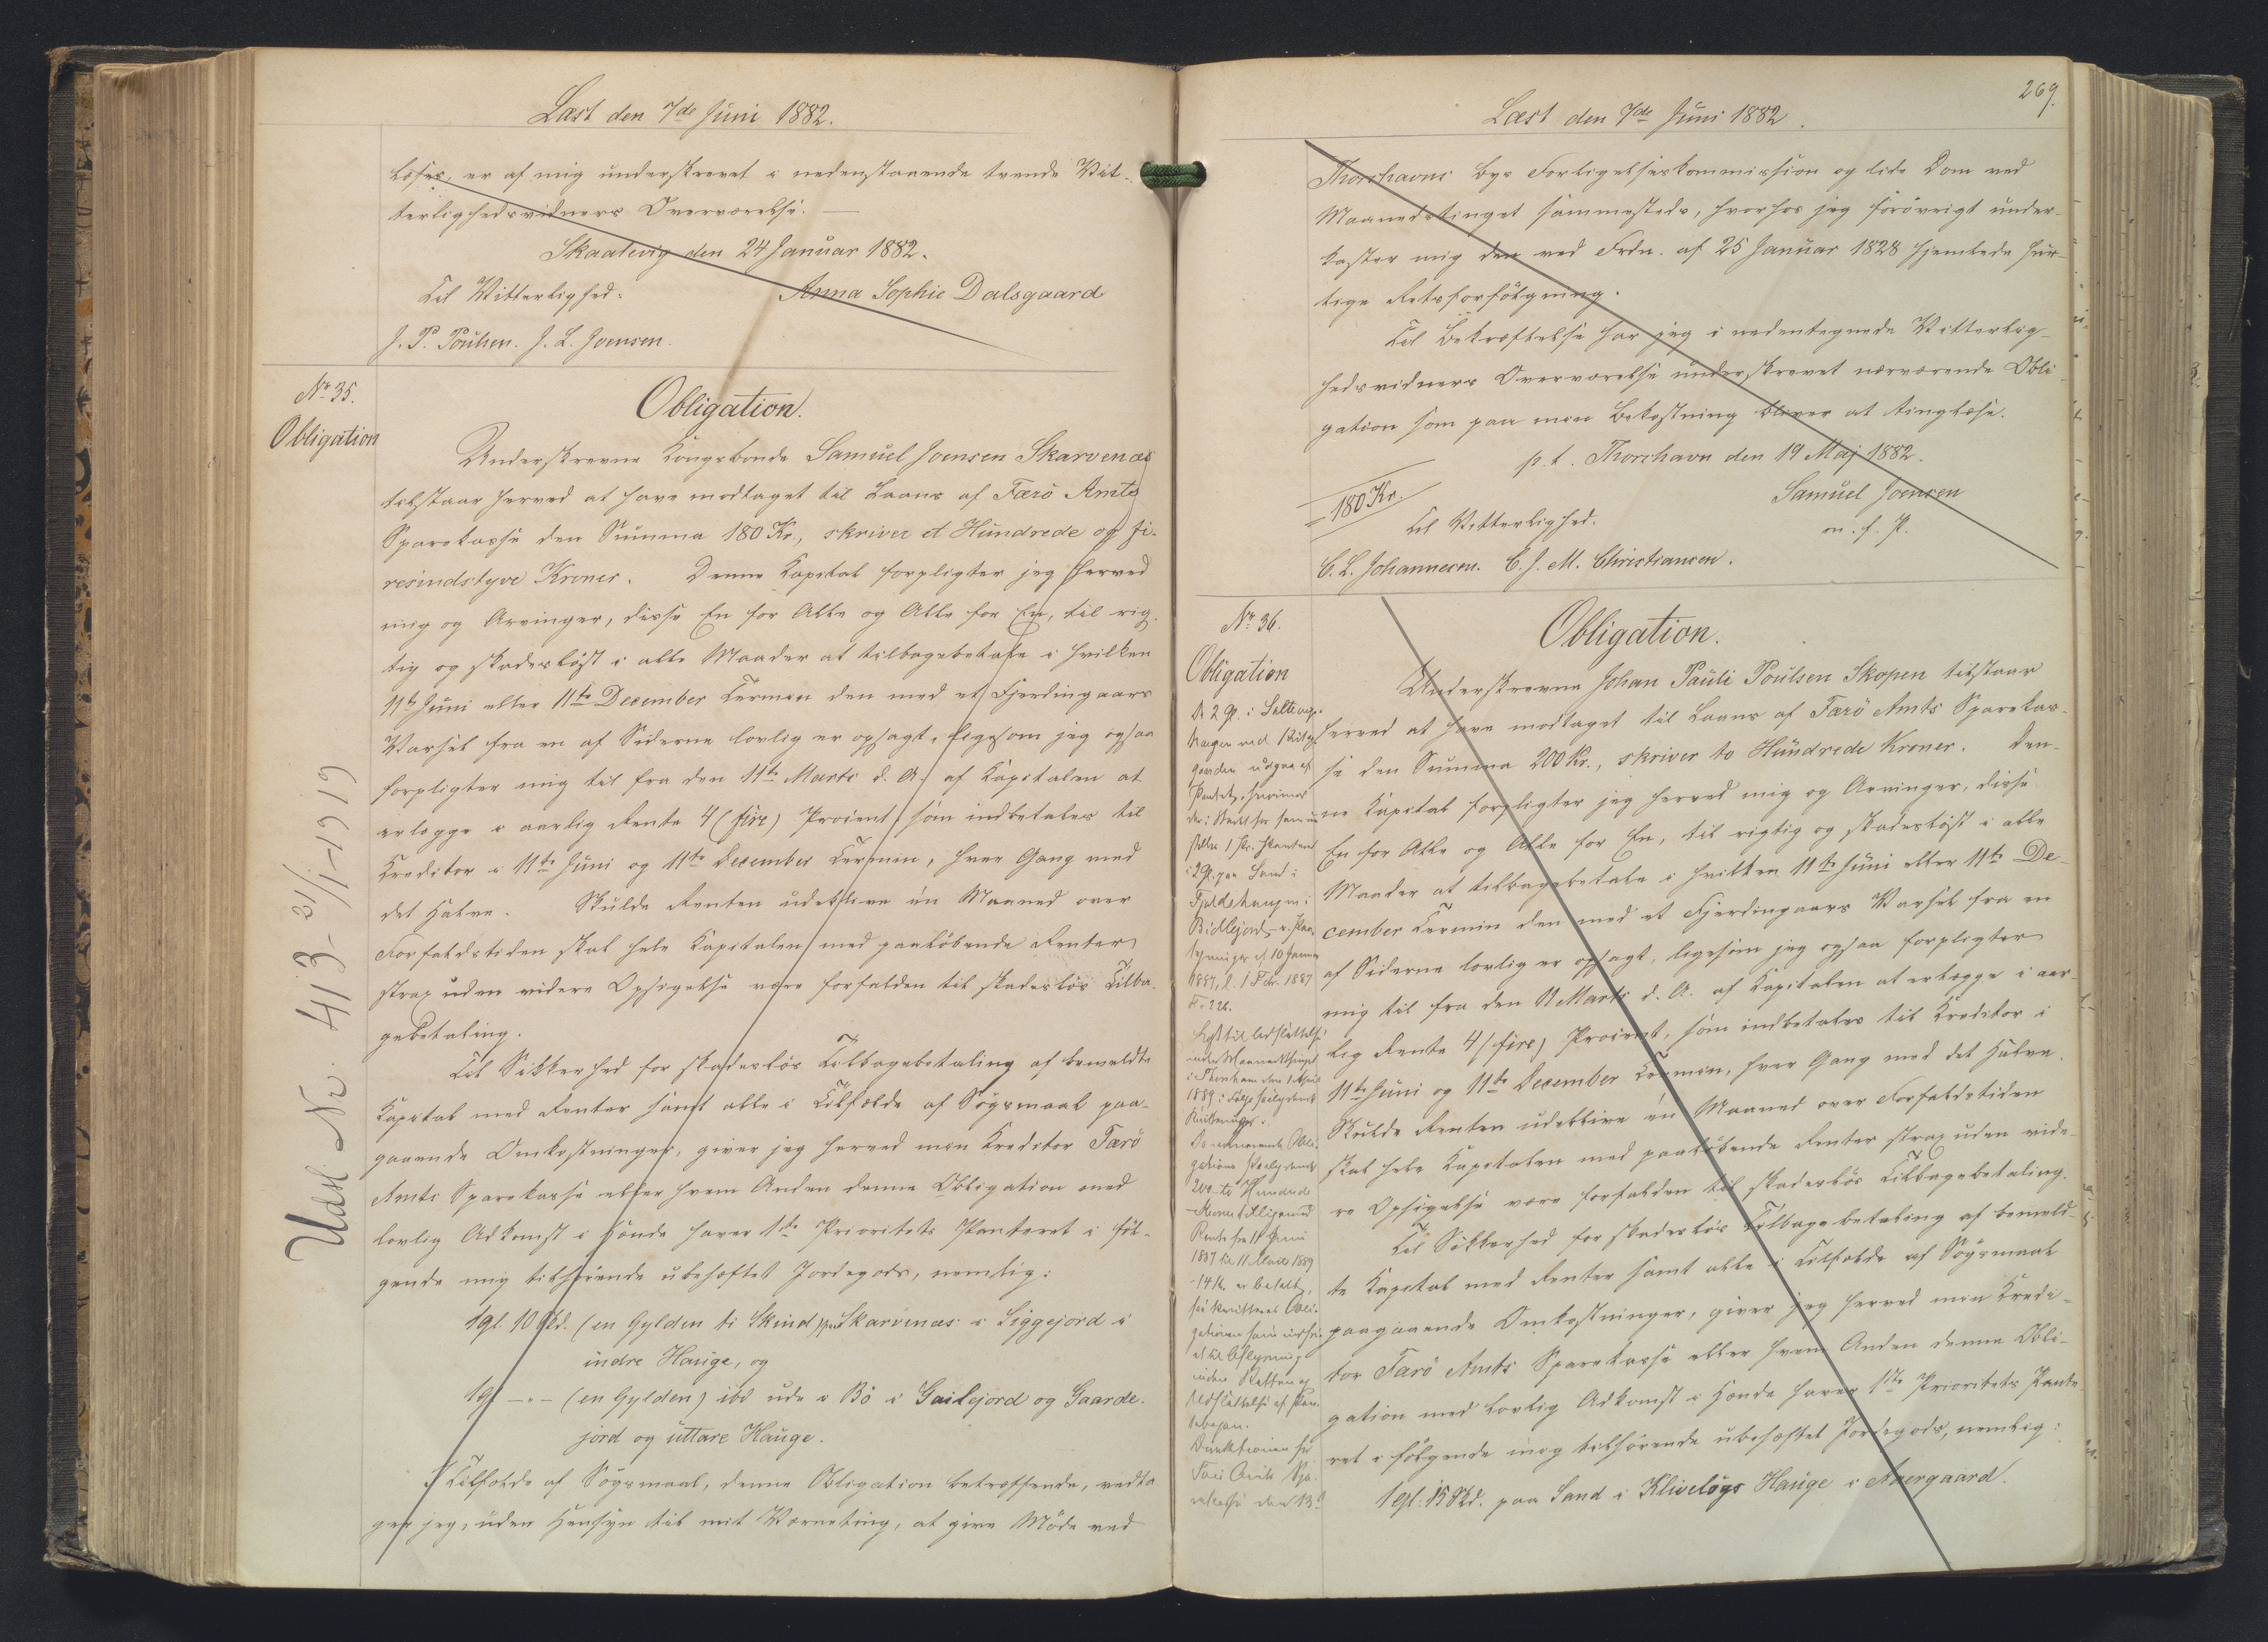 Læst den 7de Juni 1882.
læses, er af mig underskrevet i nedenstaaende tvende Vit-
terlighedsvidners Overværelse. —
Skaalevig den 24 Januar 1882.
Til Vitterlighed: Anna Sophie Dalsgaard
J. P. Poulsen. J. L. Joensen.
No 35.
Obligation
Obligation.
Underskrevne Kongsbonde Samuel Joensen Skarvenæs
tilstaar herved at have modtaget til Laans af Færö Amts
Sparekasse den Summa 180 Kr., skriver et Hundrede og fi-
resindstyve Kroner. Denne Kapital forpligter jeg herved
mig og Arvinger, disse En for Alle og Alle for En, til rig-
tig og skadesløst i alle Maader at tilbagebetale i hvilken
11te Juni eller 11te December Termin den med et Fjerdingaars
Varsel fra en af Siderne lovlig er opsagt, ligesom jeg ogsaa
forpligter mig til fra den 11te Marts d. A. af Kapitalen at
erlægge i aarlig Rente 4 (fire) Procent, som indbetales til
Kreditor i 11te Juni og 11te December Termin, hver Gang med
det Halve. Skulde Renten udeblive en Maaned over
Forfaldstiden skal hele Kapitalen med paaløbende Renter
strax uden videre Opsigelse være forfalden til skadesløs Tilba-
gebetaling.
Til Sikkerhed for skadesløs Tilbagebetaling af bemeldte
Kapital med Renter samt alle i Tilfælde af Søgsmaal paa-
gaaende Omkostninger, giver jeg herved min Kreditor Færö
Amts Sparekasse eller hvem Anden denne Obligation med
lovlig Adkomst i Hænde haver 1ste Prioritets Panteret i føl-
gende mig tilhørende ubehæftet Jordegods, nemlig:
1 Gl. 10 Skd. (en Gylden ti Skind) paa Skarvenæs i Liggejord i
indre Hauge, og
1 Gl — „ — (en Gylden) ibd ude i Bö i Gailejord og Gaarde-
jord og uttare Hauge.
I Tilfælde af Søgsmaal, denne Obligation betræffende, vedta-
ger jeg, uden Hensyn til mit Værneting, at give Møde ved
Udsl Nr. 413 - 31/1 - 1919
269.
Læst den 7de Juni 1882.
Thorshavns Byes Forligelseskommission og lide Dom ved
Maanedstinget sammesteds, hvorhos jeg forøvrigt under-
kaster mig den ved Frdn. af 25 Januar 1828 hjemlede hur-
tige Retsforfølgning.
Til Bekræftelse har jeg i nedentegnede Vitterlig-
hedsvidners Overværelse underskrevet nærværende Obli-
gation som paa min Bekostning bliver at tinglæse.
p. t. Thorshavn den 19 Maj 1882.
= 180 Kr. Samuel Joensen
Til Vitterlighed: m. f. P.
C. L. Johannesen. C. J. M. Christiansen.
No 36.
Obligation
Obligation.
Underskrevne Johan Pauli Poulsen Skopen tilstaar
herved at have modtaget til Laans af Færö Amts Sparekas-
se den Summa 200 Kr., skriver to Hundrede Kroner. Den-
ne Kapital forpligter jeg herved mig og Arvinger, disse
En for Alle og Alle for En, til rigtig og skadesløst i alle
Maader at tilbagebetale i hvilken 11te Juni eller 11te De-
cember Termin den med et Fjerdingaars Varsel fra en
af Siderne lovlig er opsagt, ligesom jeg ogsaa forpligter
mig til fra den 11 Marts d. A. af Kapitalen at erlægge i aar-
lig Rente 4 (fire) Procent, som indbetales til Kreditor i
11te Juni og 11te December Termin, hver Gang med det Halve.
Skulde Renten udeblive en Maaned over Forfaldstiden
skal hele Kapitalen med paaløbende Renter strax uden vide-
re Opsigelse være forfalden til skadesløs Tilbagebetaling.
Til Sikkerhed for skadesløs Tilbagebetaling af bemeld-
te Kapital med Renter samt alle i Tilfælde af Søgsmaal
paagaaende Omkostninger, giver jeg herved min Kredi-
tor Færö Amts Sparekasse eller hvem Anden denne Obli-
gation med lovlig Adkomst i Hænde haver 1ste Prioritets Pante-
ret i følgende mig tilhørende ubehæftet Jordegods, nemlig:
1 Gl. 15 Skd. paa Sand i Klivelögs Hauge i
i 2 Gl. paa Sand i
1887, l. 1 Febr. 1887
Fo 226.
i Thorshavn den 1 April
200 - to Hundrede
Rente fra 11 Juni
1887 til 11 Marts 1889
er betalt,